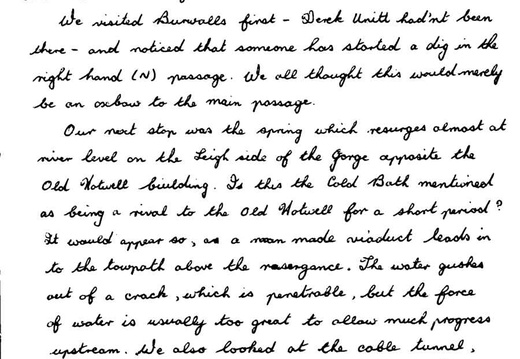 We visited Burwalls first - Derek Unitt had'nt been
there - and noticed that someone has started a dig in the
right hand (N) passage. We all thought this would merely
be an oxbow to the main passage.
Our next stop was the spring which resurges almost at
river level on the Leigh side of the Gorge opposite the
Old Hotwell building. Is this the Cold Bath mentioned
as being a rival to the Old Hotwell for a short period?
It would appear so, as a man made viaduct leads in
to the towpath above the resergance. The water gushes
out of a crack, which is penetrable, but the force
of water is usually too great to allow much progress
upstream. We also looked at the cable tunnel,